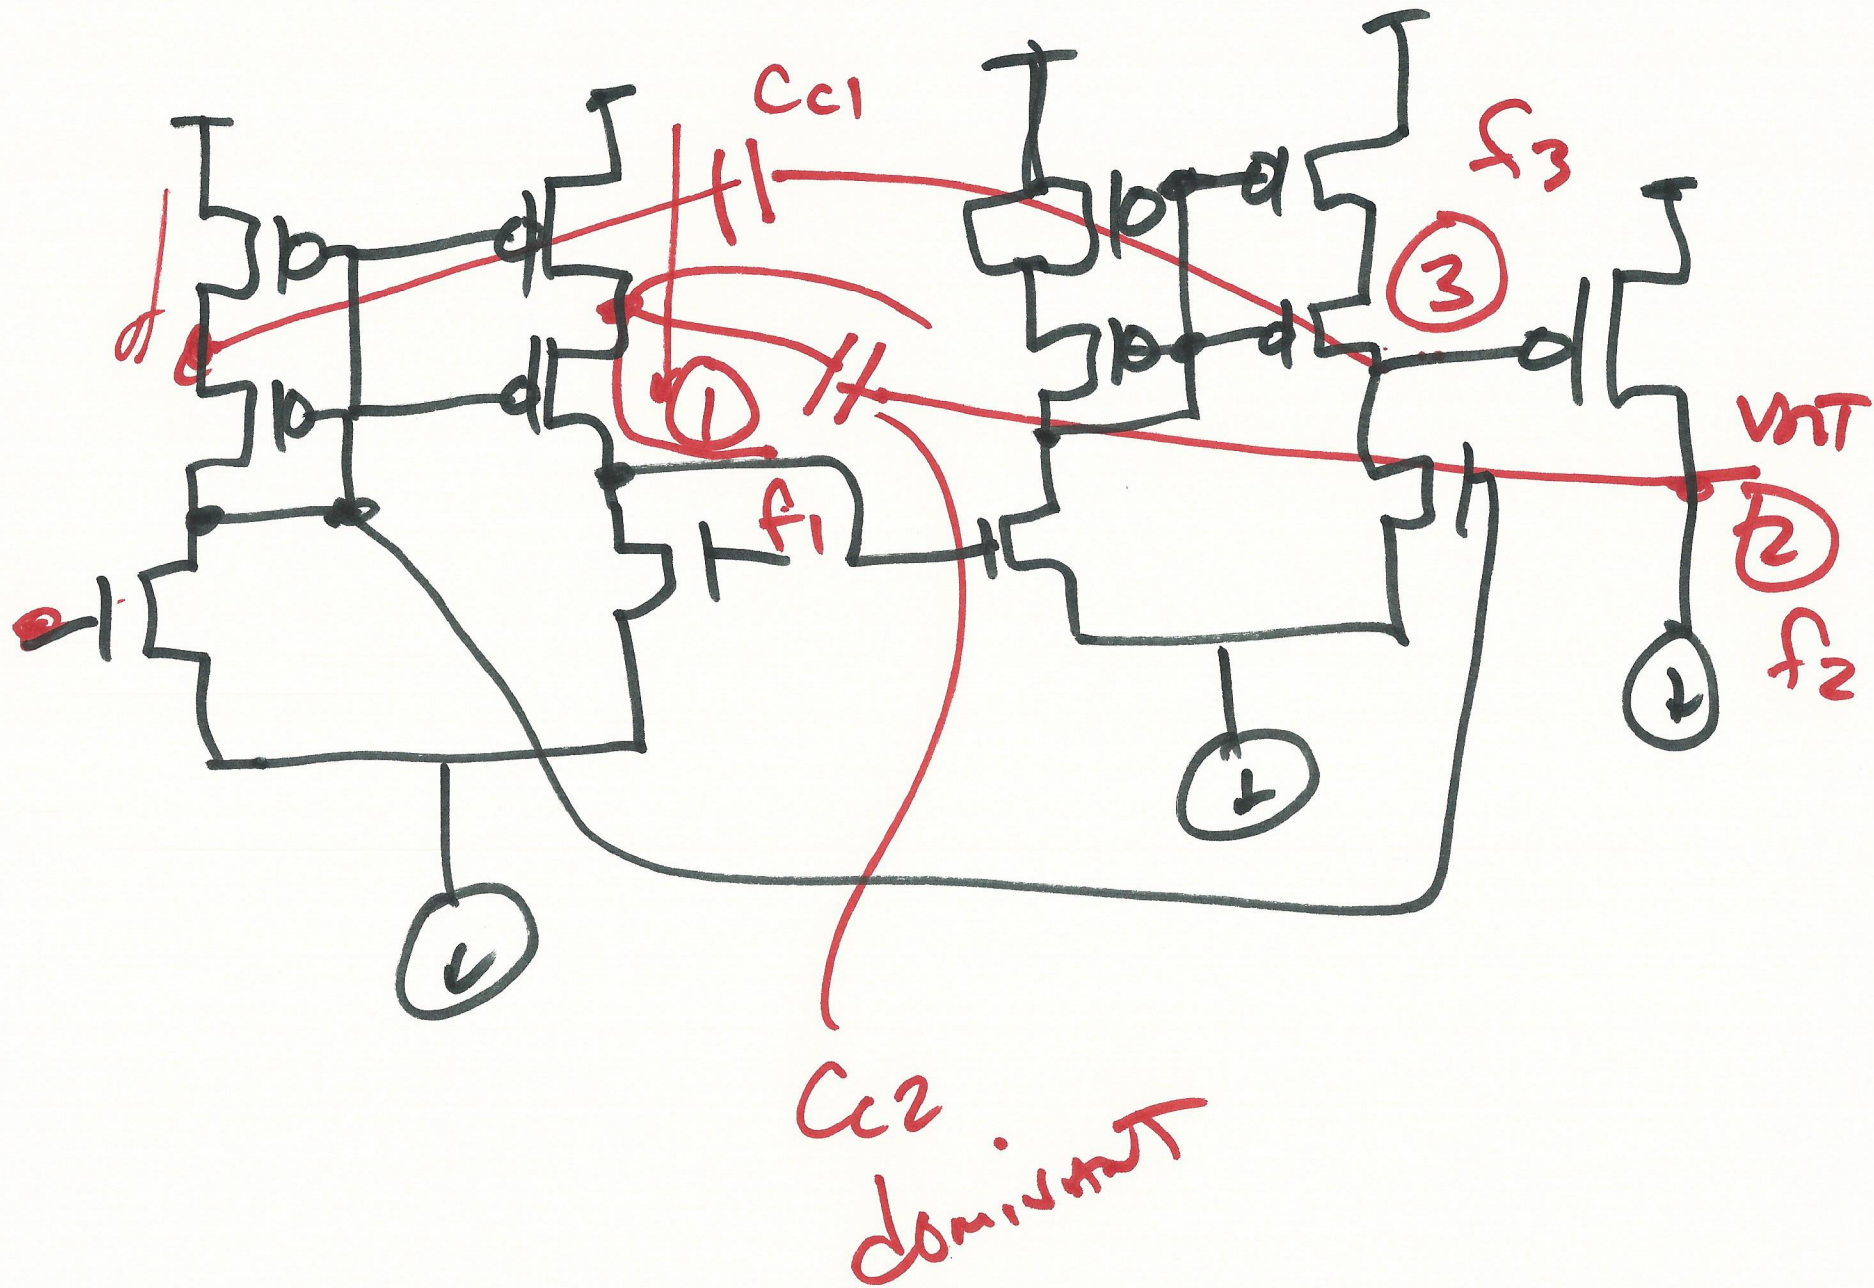 Cc1
f3
3
1
VOUT
f1
2
f2
Cc2
dominant